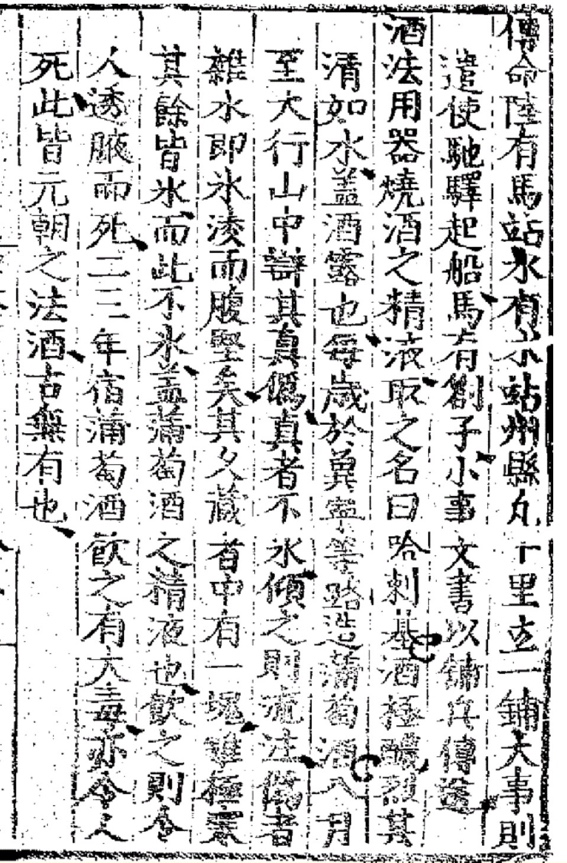 傳命陸有馬站水有水站州縣凡十里立一鋪大事則
遣使馳驛起船馬有劄子小事文書以鋪兵傳送
酒法用器燒酒之精液取之名曰哈剌基酒極醲烈其
清如水蓋酒露也每歲於冀寧等路造蒲萄酒八月
至大行山中辯其真僞真者不氷傾之則流注僞者
雜水即氷凌而腹堅矣其久藏者中有一塊雖極寒
其餘皆氷而此不氷蓋蒲萄酒之精液也飲之則令
人透腋而死二三年宿蒲萄酒飲之有大毒亦令人
死此皆元朝之法酒古無有也